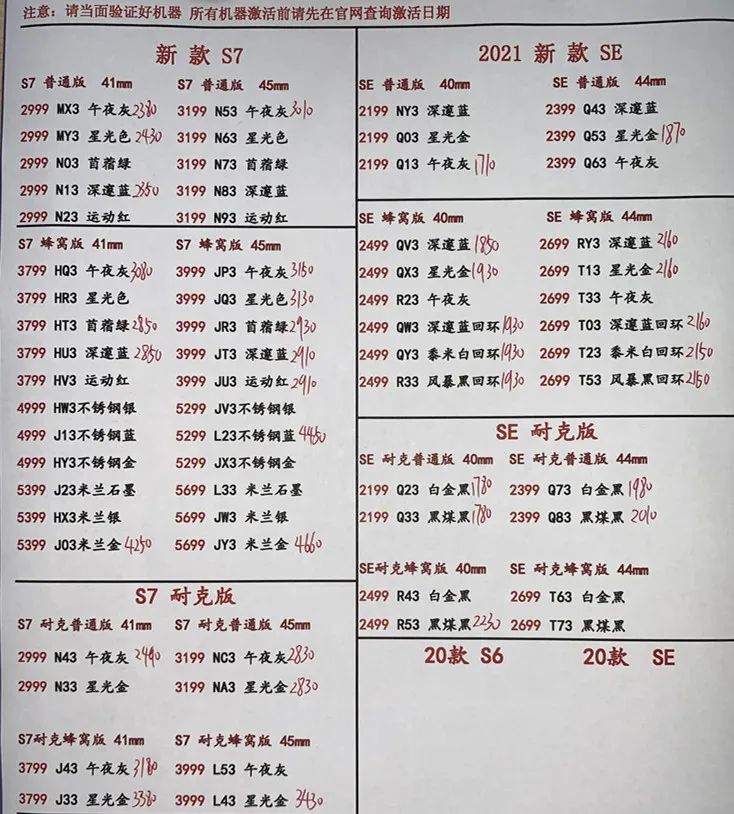 注意：请当面验证好机器 所有机器激活前请先在官网查询激活日期
新 款 S7
S7 普通版 41mm S7 普通版 45mm
2999 MX3 午夜灰2380 3199 N53 午夜灰3010
2999 MY3 星光色2430 3199 N63 星光色
2999 N03 首蓿绿 3199 N73 首蓿绿
2999 N13 深邃蓝2350 3199 N83 深邃蓝
2999 N23 运动红 3199 N93 运动红
S7 蜂窝版 41mm S7 蜂窝版 45mm
3799 HQ3 午夜灰3080 3999 JP3 午夜灰3150
3799 HR3 星光色 3999 JQ3 星光色3130
3799 HT3 首蓿绿2850 3999 JR3 首蓿绿2930
3799 HU3 深邃蓝2850 3999 JT3 深邃蓝2910
3799 HV3 运动红 3999 JU3 运动红2910
4999 HW3不锈钢银 5299 JV3不锈钢银
4999 J13不锈钢蓝 5299 L23不锈钢蓝4450
4999 HY3不锈钢金 5299 JX3不锈钢金
5399 J23米兰石墨 5699 L33 米兰石墨
5399 HX3米兰银 5699 JW3 米兰银
5399 J03米兰金4250 5699 JY3 米兰金4660
S7 耐克版
S7 耐克普通版 41mm S7 耐克普通版 45mm
2999 N43 午夜灰2490 3199 NC3 午夜灰2830
2999 N33 星光金 3199 NA3 星光金2830
S7耐克蜂窝版 41mm S7 耐克蜂窝版 45mm
3799 J43 午夜灰3180 3999 L53 午夜灰
3799 J33 星光金3380 3999 L43 星光金3430
2021 新 款 SE
SE 普通版 40mm SE 普通版 44mm
2199 NY3 深邃蓝 2399 Q43 深邃蓝
2199 Q03 星光金 2399 Q53 星光金1870
2199 Q13 午夜灰1710 2399 Q63 午夜灰
SE 蜂窝版 40mm SE 蜂窝版 44mm
2499 QV3 深邃蓝1850 2699 RY3 深邃蓝2160
2499 QX3 星光金1930 2699 T13 星光金2160
2499 R23 午夜灰 2699 T33 午夜灰
2499 QW3 深邃蓝回环1930 2699 T03 深邃蓝回环2160
2499 QY3 黍米白回环1930 2699 T23 黍米白回环2150
2499 R33 风暴黑回环1930 2699 T53 风暴黑回环2150
SE 耐克版
SE 耐克普通版 40mm SE 耐克普通版 44mm
2199 Q23 白金黑1780 2399 Q73 白金黑1980
2199 Q33 黑煤黑1780 2399 Q83 黑煤黑 2010
SE耐克蜂窝版 40mm SE 耐克蜂窝版 44mm
2499 R43 白金黑 2699 T63 白金黑
2499 R53 黑煤黑2230 2699 T73 黑煤黑
20款 S6 20款 SE